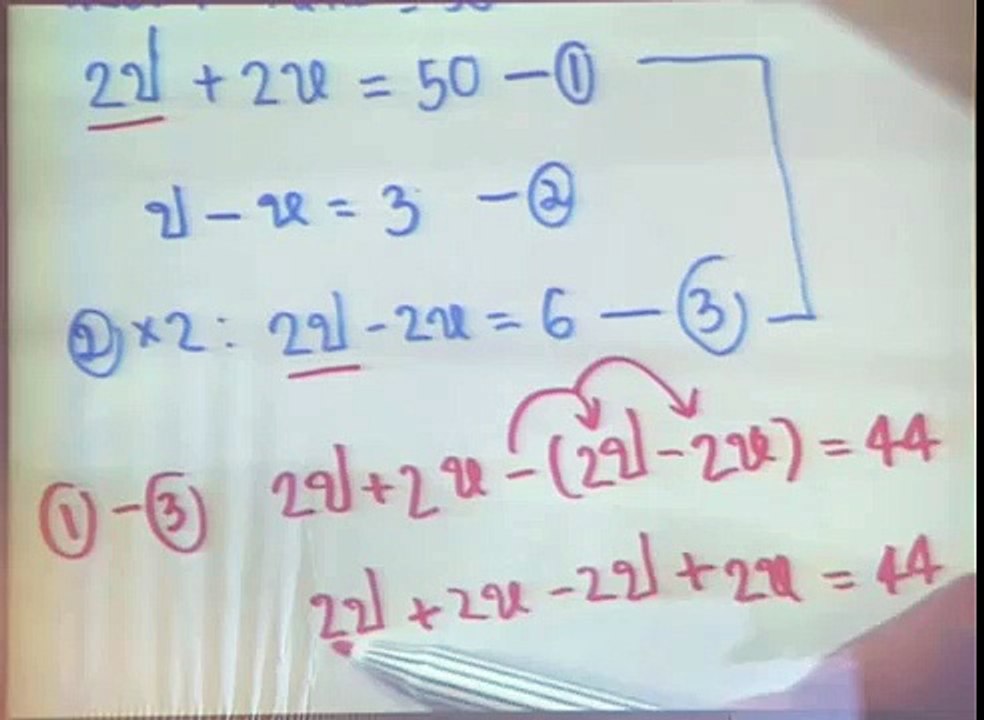 2ป + 2น = 50 – ①
ป – น = 3 – ②
② × 2 : 2ป - 2น = 6 – ③
① – ③ 2ป + 2น – (2ป – 2น) = 44
2ป + 2น – 2ป + 2น = 44